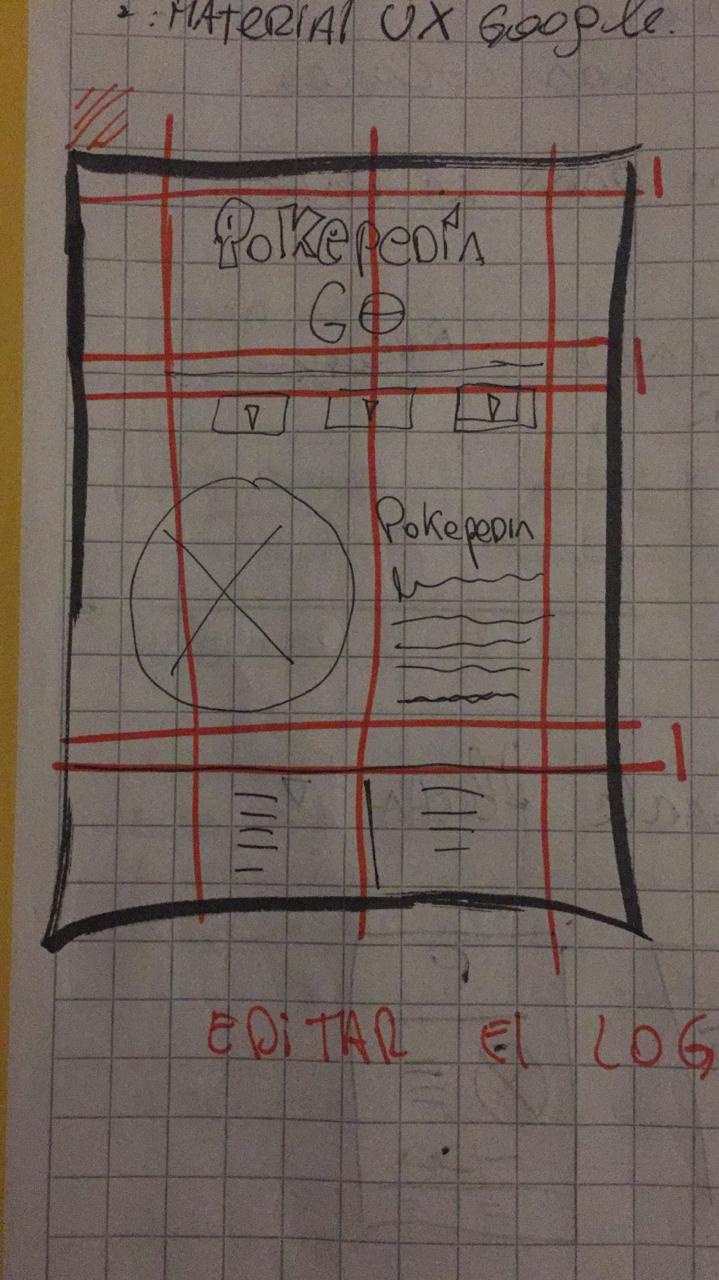 2: MATERIAL UX Google.
PoKepedia
GO
PoKepedia
EDiTAR El LOG